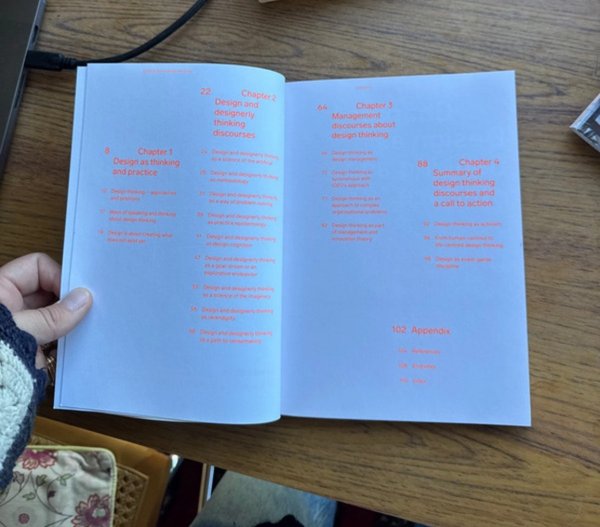 8 Chapter 1
Design as thinking
and practice
Design thinking – approaches
and positions
Ways of speaking and thinking
about design thinking
Design is about creating what
does not exist yet
22 Chapter 2
Design and
designerly
thinking
discourses
Design and designerly thinking
as a science of the artificial
Design and designerly thinking
as methodology
Design and designerly thinking
as a way of problem-solving
Design and designerly thinking
as practice epistemology
Design and designerly thinking
as design cognition
47 Design and designerly thinking
as a goal-driven or an
explorative endeavour
Design and designerly thinking
as a science of the imaginary
Design and designerly thinking
as
Design and designerly thinking
as a path to sensemaking
64 Chapter 3
Management
discourses about
design thinking
Design thinking as
design management
Design thinking as
synonymous with
IDEO's approach
Design thinking as an
approach to complex
organisational problems
Design thinking as part
of management and
innovation theory
88 Chapter 4
Summary of
design thinking
discourses and
a call to action
Design thinking as activism
From human-centred to
life-centred design thinking
Design as avant-garde
discipline
102 Appendix
References
Index